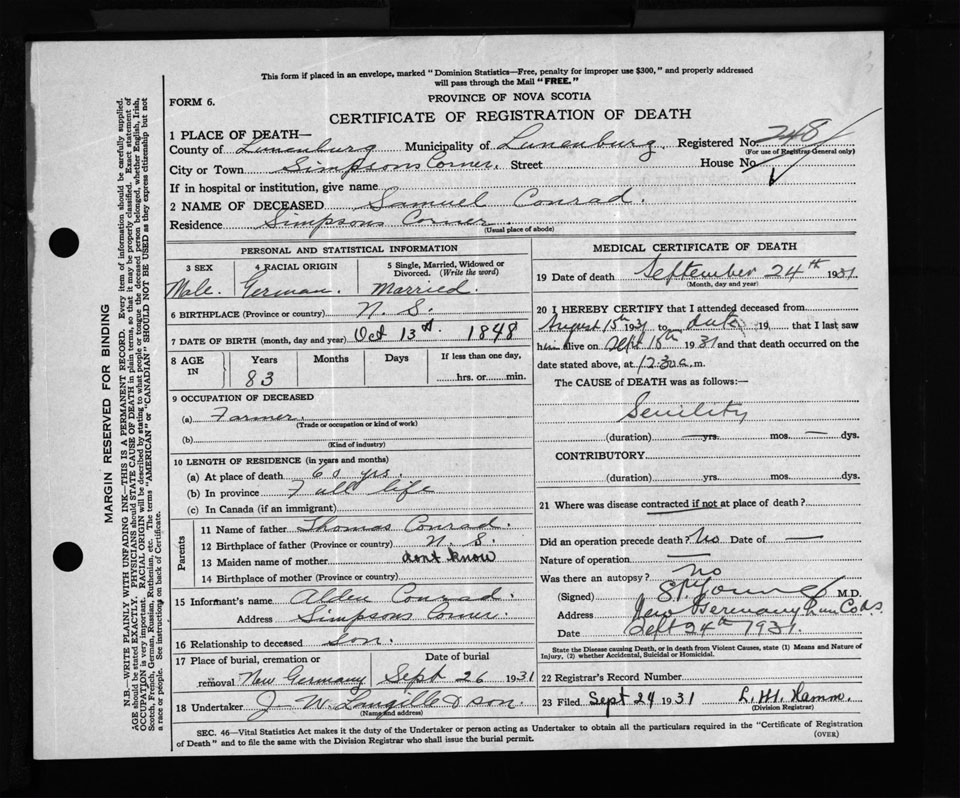 This form if placed in an envelope, marked "Dominion Statistics—Free, penalty for improper use $300," and properly addressed
will pass through the Mail "FREE."
FORM 6.
PROVINCE OF NOVA SCOTIA
CERTIFICATE OF REGISTRATION OF DEATH
1 PLACE OF DEATH—
County of Lunenburg Municipality of Lunenburg Registered No. 248
(For use of Registrar General only)
City or Town Simpsons Corner. Street House No.
If in hospital or institution, give name
2 NAME OF DECEASED Samuel Conrad.
Residence Simpsons Corner.
(Usual place of abode)
PERSONAL AND STATISTICAL INFORMATION
3 SEX 4 RACIAL ORIGIN 5 Single, Married, Widowed or
Divorced. (Write the word)
Male. German. Married.
6 BIRTHPLACE (Province or country) N. S.
7 DATE OF BIRTH (month, day and year) Oct 13th. 1848
8 AGE IN Years Months Days If less than one day,
83 hrs. or min.
9 OCCUPATION OF DECEASED
(a) Farmer.
(Trade or occupation or kind of work)
(b)
(Kind of industry)
10 LENGTH OF RESIDENCE (in years and months)
(a) At place of death 60 yrs.
(b) In province Full life
(c) In Canada (if an immigrant)
Parents
11 Name of father Thomas Conrad.
12 Birthplace of father (Province or country) N. S.
13 Maiden name of mother dont know
14 Birthplace of mother (Province or country)
15 Informant's name Alden Conrad.
Address Simpsons Corner.
16 Relationship to deceased Son.
17 Place of burial, cremation or Date of burial
removal New Germany Sept 26 1931
18 Undertaker J. W. Langille & son.
(Name and address)
MEDICAL CERTIFICATE OF DEATH
19 Date of death September 24th 1931
(Month, day and year)
20 I HEREBY CERTIFY that I attended deceased from
August 15th 1931 to date 19 that I last saw
him alive on Sept 18th 1931 and that death occurred on the
date stated above, at 12.30 a. m.
The CAUSE of DEATH was as follows:—
Senility
(duration) — yrs. mos. — dys.
CONTRIBUTORY
(duration) yrs. mos. dys.
21 Where was disease contracted if not at place of death?
Did an operation precede death? No Date of —
Nature of operation —
Was there an autopsy? no
(Signed) Young M.D.
Address New Germany Lun Co N.S.
Date Sept 24th 1931.
State the Disease causing Death, or in death from Violent Causes, state (1) Means and Nature of
Injury, (2) whether Accidental, Suicidal or Homicidal.
22 Registrar's Record Number
23 Filed Sept 24 1931 L. H. Hamm.
(Division Registrar)
SEC. 46—Vital Statistics Act makes it duty of the Undertaker or person acting as Undertaker to obtain all the particulars required in the "Certificate of Registration
of Death" and to file the same with the Division Registrar who shall issue the burial permit.
(OVER)
MARGIN RESERVED FOR BINDING
N.B.—WRITE PLAINLY WITH UNFADING INK—THIS IS A PERMANENT RECORD. Every item of information should be carefully supplied.
AGE should be stated EXACTLY. PHYSICIANS should STATE CAUSE OF DEATH in plain terms, so that it may be properly classified. Exact statement of
OCCUPATION is very important. RACIAL ORIGIN will be described by stating to what people or tongue the deceased person belonged, whether English, Irish,
Scotch, French, German, Russian, Ruthenian, etc. The terms "AMERICAN" or "CANADIAN" SHOULD NOT BE USED as they express citizenship but not
a race or people. See instructions on back of Certificate.